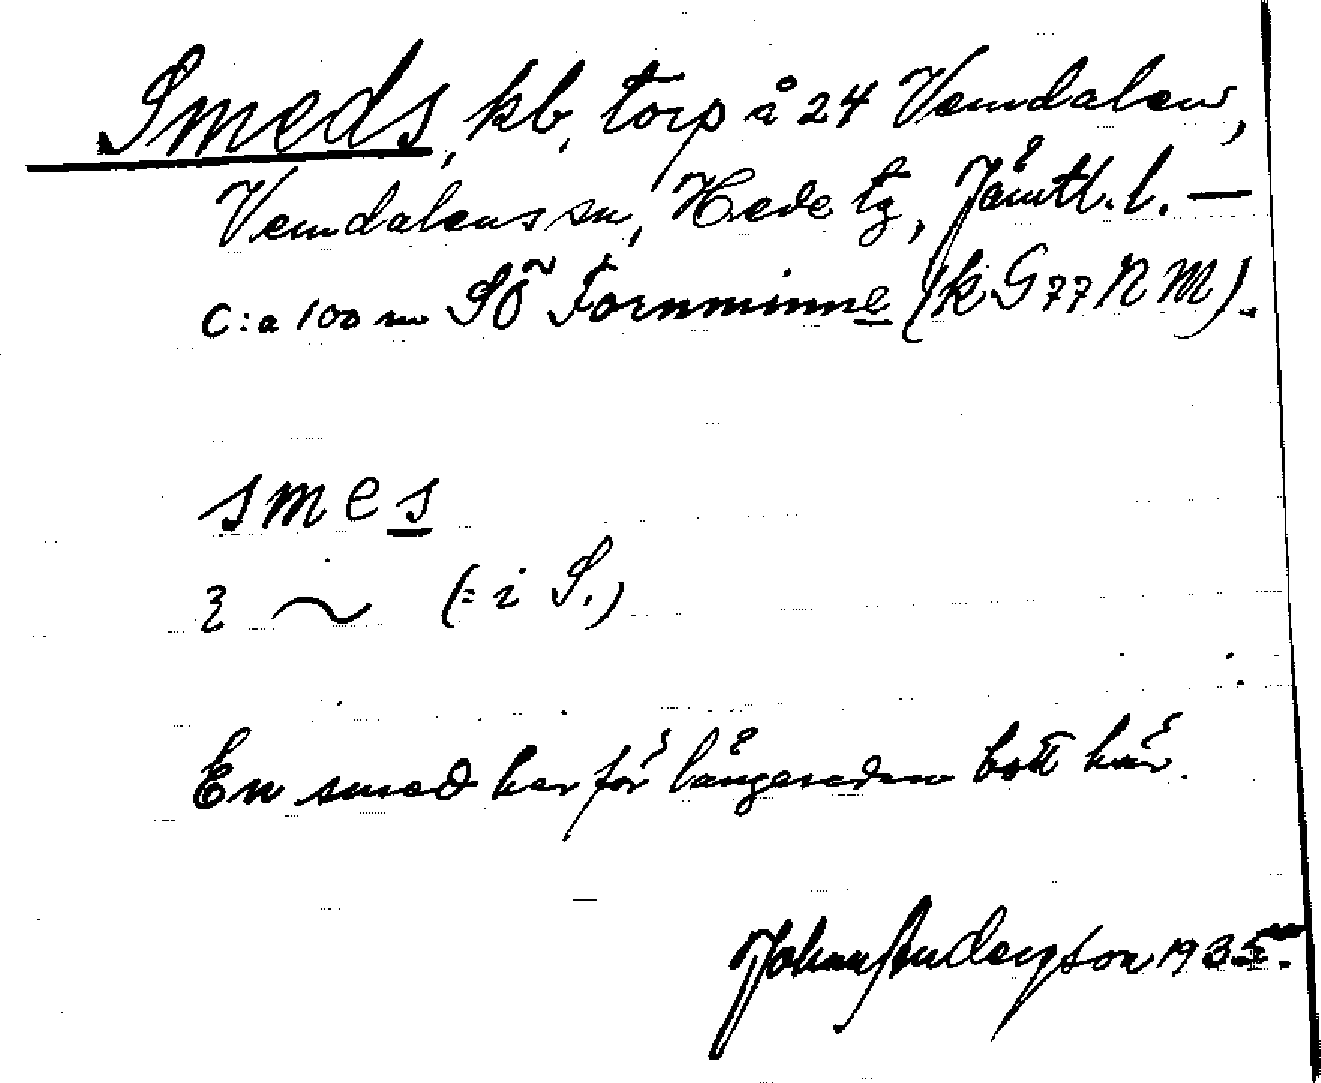 Smeds, kb, torp å 24 Vemdalen,
Vemdalens sn, Hede tg, Jämtl. l. —
c:a 100 m SÖ Fornminne (k G 77 N M).
smes
ɩ ~ (= i S.)
En smed har för länge sedan bott här.
Johan Anderson 1935.